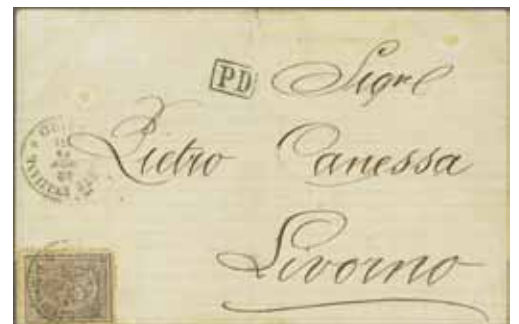 PD
Sigre
Pietro Canessa
Livorno